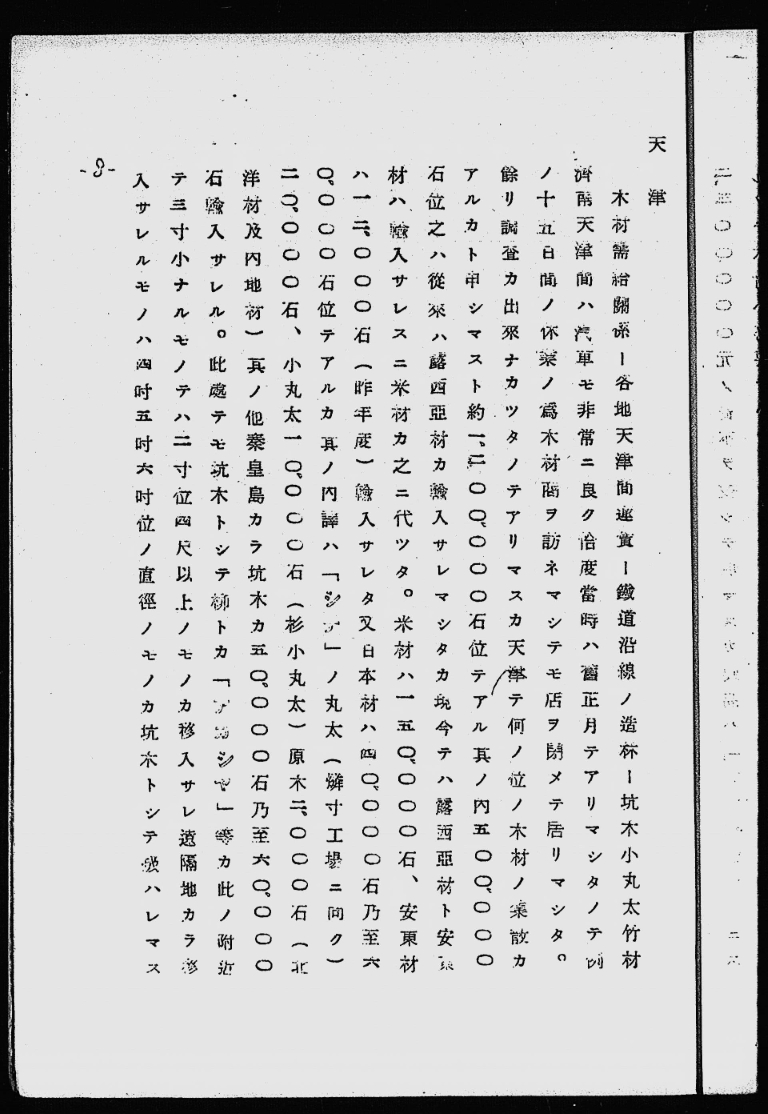 天津
木材需給關係ー各地天津間運賃ー鐵道沿線ノ造林ー坑木小丸太竹材
濟南天津間ハ汽車モ非常ニ良ク恰度當時ハ舊正月テアリマシタノテ例
ノ十五日間ノ休業ノ爲木材商ヲ訪ネマシテモ店ヲ閉メテ居リマシタ。
餘リ調査カ出來ナカツタノテアリマスカ天津テ何ノ位ノ木材ノ集散カ
アルカト申シマスト約一、二〇〇、〇〇〇石位テアル其ノ内五〇〇、〇〇〇
石位之ハ從來ハ露西亞材カ輸入サレマシタカ現今テハ露西亞材ト安東
材ハ輸入サレスニ米材カ之ニ代ツタ。米材ハ一五〇、〇〇〇石、安東材
ハ一二、〇〇〇石（昨年度）輸入サレタ又日本材ハ四〇、〇〇〇石乃至六
〇、〇〇〇石位テアルカ其ノ内譯ハ「シナ」ノ丸太（燐寸工場ニ向ク）
二〇、〇〇〇石、小丸太一〇、〇〇〇石（杉小丸太）原木二、〇〇〇石（北
洋材及内地材）其ノ他秦皇島カラ坑木カ五〇、〇〇〇石乃至六〇、〇〇〇
石輸入サレル。此處テモ坑木トシテ柳トカ「アカシヤ」等カ此ノ附近
テ三寸小ナルモノテハ二寸位四尺以上ノモノカ移入サレ遠隔地カラ移
入サレルモノハ四吋五吋六吋位ノ直徑ノモノカ坑木トシテ扱ハレマス
-8-